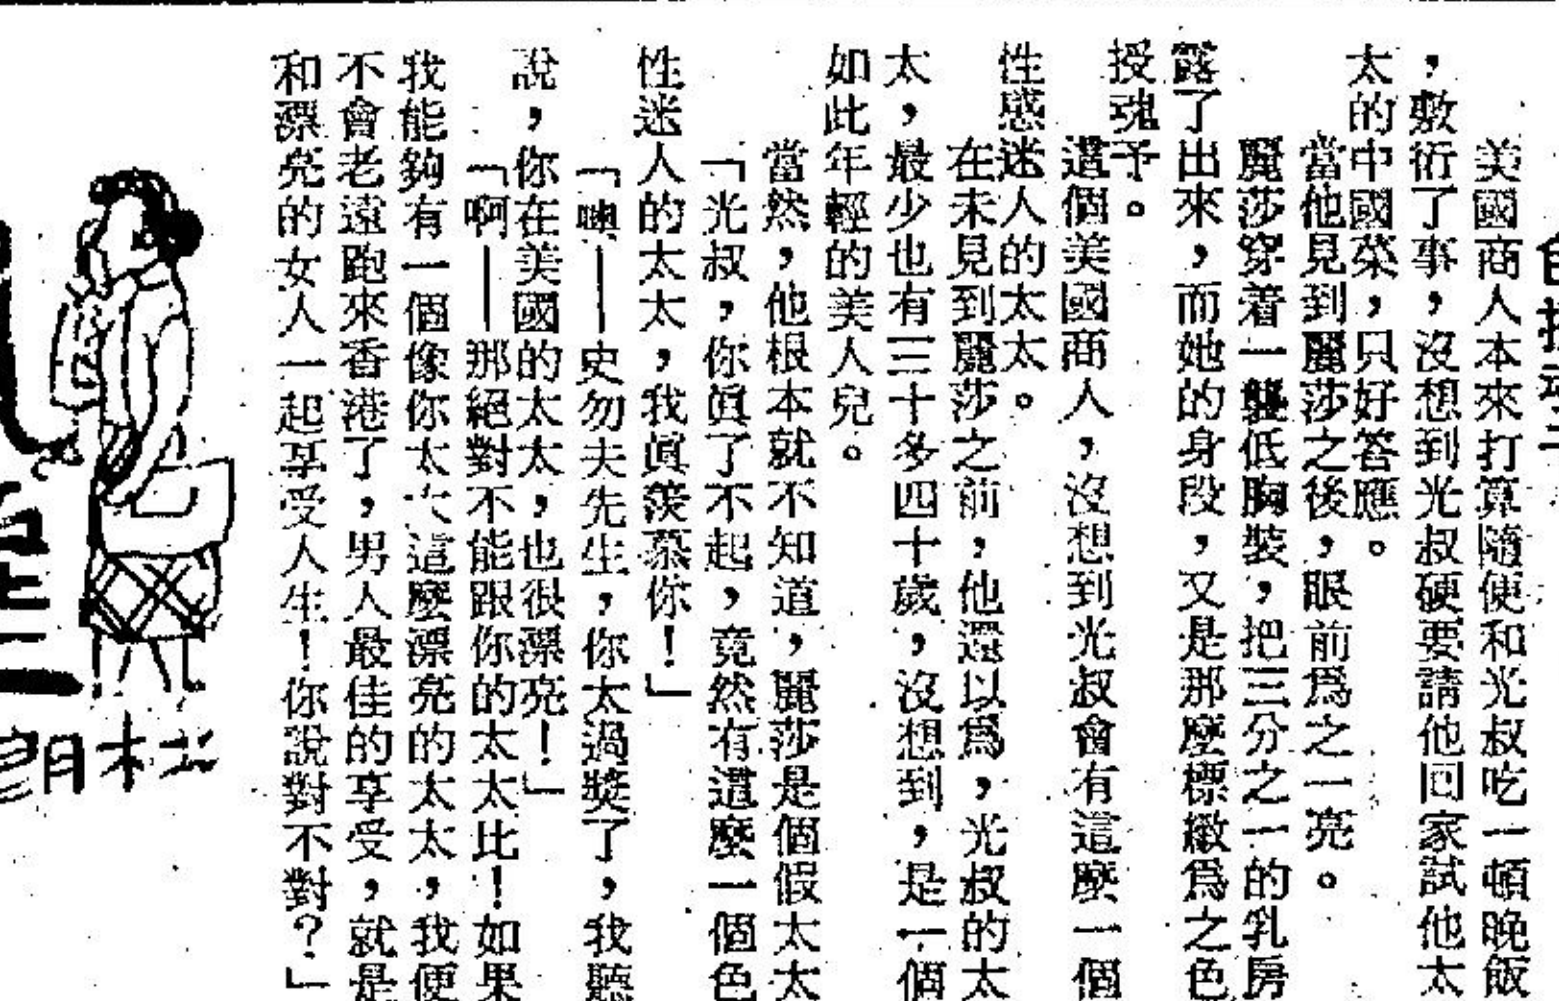 美國商人本來打算隨便和光叔吃一頓晚飯
，敷衍了事，沒想到光叔硬要請他回家試他太
太的中國菜，只好答應。
當他見到麗莎之後，眼前爲之一亮。
麗莎穿着一襲低胸裝，把三分之一的乳房
露了出來，而她的身段，又是那麼標緻爲之色
授魂予。
這個美國商人，沒想到光叔會有這麼一個
性感迷人的太太。
在未見到麗莎之前，他還以爲，光叔的太
太，最少也有三十多四十歲，沒想到，是一個
如此年輕的美人兒。
當然，他根本就不知道，麗莎是個假太太
「光叔，你眞了不起，竟然有這麼一個色
性迷人的太太，我眞羨慕你！」
「噢——史勿夫先生，你太過獎了，我聽
說，你在美國的太太，也很漂亮！」
「啊——那絕對不能跟你的太太比！如果
我能夠有一個像你太太這麼漂亮的太太，我便
不會老遠跑來香港了，男人最佳的享受，就是
和漂亮的女人一起享受人生！你說對不對？」
杜朗